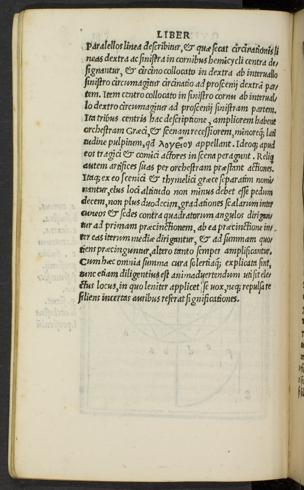 LIBER
Parallelos linea describitur, & quæ secat circinationis li
neas dextra ac sinistra in cornibus hemicycli centra de-
signantur, & circino collocato in dextra ab interuallo
sinistro circumagitur circinatio ad proscenij dextrã par
tem. Item centro collocato in sinistro cornu ab interual
lo dextro circumagitur ad proscenij sinistram partem.
Ita tribus centris hac descriptione, ampliorem habent
orchestram Græci, & scenam recessiorem, minoreq; lati
tudine pulpitum, quã λογειον appellant. Ideoq; apud
eos tragici & comici actores in scena peragunt. Reliq
autem artifices suas per orchestram præstant actiones.
Itaq; ex eo scenici & thymelici græce separatim nomi
nantur, eius loci altitudo non minus debet esse pedum
decem, non plus duodecim, gradationes scalarum inter
cuneos & sedes contra quadratorum angulos dirigun
tur ad primam præcinctionem, ab ea præcinctione in-
ter eas iterum mediæ diriguntur, & ad summam quo
tiens præcinguntur, altero tanto semper amplificantur.
Cum hæc omnia summa cura solertiaq; explicata sint,
tunc etiam diligentius est animaduertendum uti sit ele
ctus locus, in quo leniter applicet se uox, neq; repulsa re
siliens incertas auribus referat significationes.